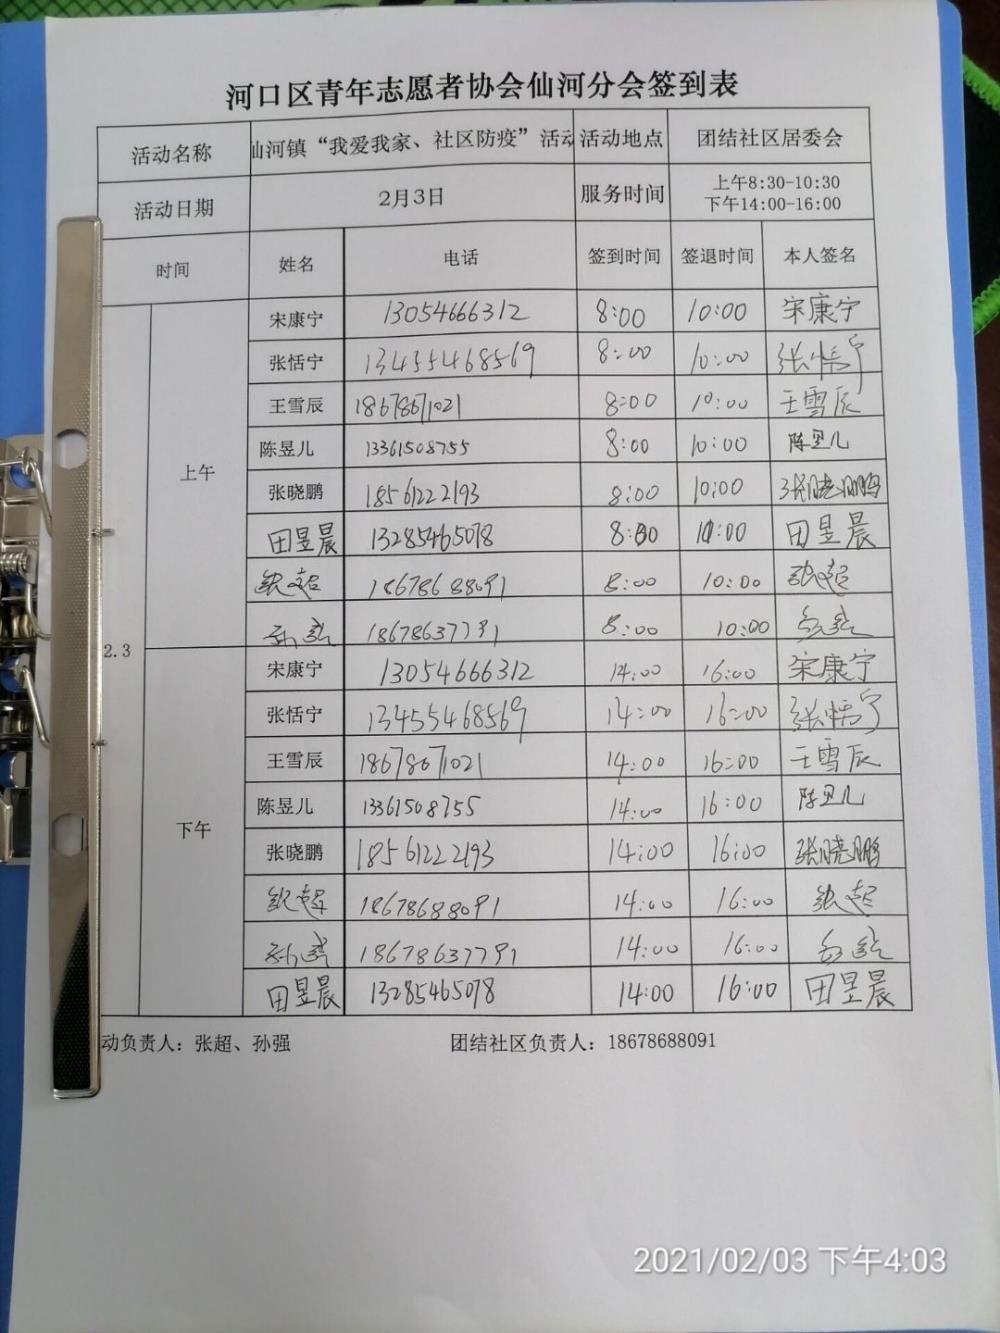 河口区青年志愿者协会仙河分会签到表
活动名称 仙河镇“我爱我家、社区防疫”活动 活动地点 团结社区居委会
活动日期 2月3日 服务时间 上午8:30-10:30
下午14:00-16:00
时间 姓名 电话 签到时间 签退时间 本人签名
2.3
上午
宋康宁 13054666312 8:00 10:00 宋康宁
张恬宁 13455468569 8:00 10:00 张恬宁
王雪辰 18678671021 8:00 10:00 王雪辰
陈昱儿 13361508755 8:00 10:00 陈昱儿
张晓鹏 18561222193 8:00 10:00 张晓鹏
田昱晨 13285465078 8:00 10:00 田昱晨
张超 18678688091 8:00 10:00 张超
孙强 18678637791 8:00 10:00 孙强
下午
宋康宁 13054666312 14:00 16:00 宋康宁
张恬宁 13455468569 14:00 16:00 张恬宁
王雪辰 18678671021 14:00 16:00 王雪辰
陈昱儿 13361508755 14:00 16:00 陈昱儿
张晓鹏 18561222193 14:00 16:00 张晓鹏
张超 18678688091 14:00 16:00 张超
孙强 18678637791 14:00 16:00 孙强
田昱晨 13285465078 14:00 16:00 田昱晨
动负责人：张超、孙强 团结社区负责人：18678688091
2021/02/03 下午4:03